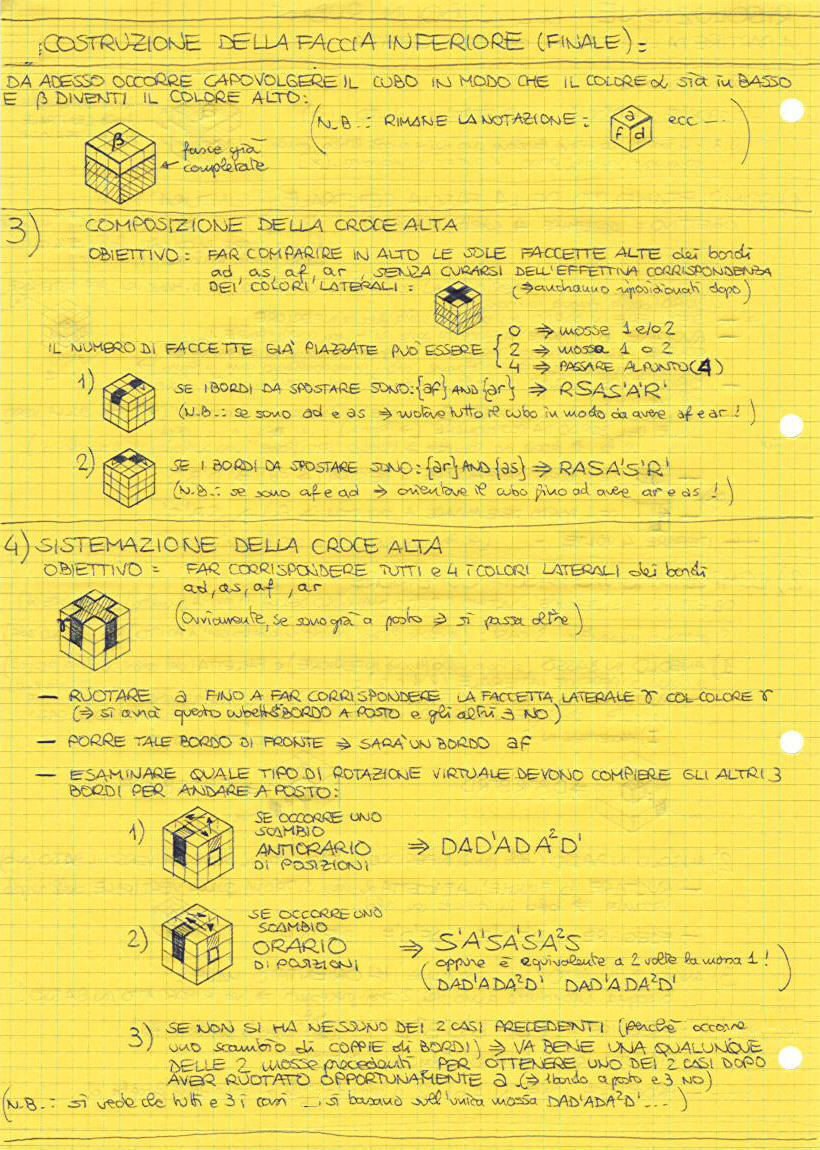 COSTRUZIONE DELLA FACCIA INFERIORE (FINALE):
DA ADESSO OCCORRE CAPOVOLGERE IL CUBO IN MODO CHE IL COLORE α sia in BASSO
E β DIVENTI IL COLORE ALTO:
(N.B.: RIMANE LA NOTAZIONE: a f d ecc ...)
β
fasce già
completate
3) COMPOSIZIONE DELLA CROCE ALTA
OBIETTIVO: FAR COMPARIRE IN ALTO LE SOLE FACCETTE ALTE dei bordi
ad, as, af, ar, SENZA CURARSI DELL'EFFETTIVA CORRISPONDENZA
DEI COLORI LATERALI: (⇒ andranno riposizionati dopo)
0 ⇒ mosse 1 e/o 2
IL NUMERO DI FACCETTE GIA' PIAZZATE PUO' ESSERE { 2 ⇒ mossa 1 o 2
4 ⇒ PASSARE AL PUNTO (4)
1) SE I BORDI DA SPOSTARE SONO: {af} AND {ar} ⇒ RSAS'A'R'
(N.B.: se sono ad e as ⇒ ruotare tutto il cubo in modo da avere af e ar!)
2) SE I BORDI DA SPOSTARE SONO: {ar} AND {as} ⇒ RASA'S'R'
(N.B.: se sono af e ad ⇒ orientare il cubo fino ad avere ar e as!)
4) SISTEMAZIONE DELLA CROCE ALTA
OBIETTIVO: FAR CORRISPONDERE TUTTI e 4 i COLORI LATERALI dei bordi
ad, as, af, ar
γ
(Ovviamente, se sono già a posto ⇒ si passa oltre)
— RUOTARE a FINO A FAR CORRISPONDERE LA FACCETTA LATERALE γ COL COLORE γ
(⇒ si avrà questo cubetto BORDO A POSTO e gli altri 3 NO)
— PORRE TALE BORDO DI FRONTE ⇒ SARA' UN BORDO af
— ESAMINARE QUALE TIPO DI ROTAZIONE VIRTUALE DEVONO COMPIERE GLI ALTRI 3
BORDI PER ANDARE A POSTO:
1) SE OCCORRE UNO
SCAMBIO
ANTIORARIO
DI POSIZIONI ⇒ DAD'ADA²D'
2) SE OCCORRE UNO
SCAMBIO
ORARIO
DI POSIZIONI ⇒ S'A'SA'S'A²S
(oppure è equivalente a 2 volte la mossa 1!
DAD'ADA²D' DAD'ADA²D')
3) SE NON SI HA NESSUNO DEI 2 CASI PRECEDENTI (perchè occorre
uno scambio di COPPIE di BORDI) ⇒ VA BENE UNA QUALUNQUE
DELLE 2 mosse precedenti, PER OTTENERE UNO DEI 2 CASI DOPO
AVER RUOTATO OPPORTUNAMENTE a (⇒ 1 bordo a posto e 3 NO)
(N.B.: si vede che tutti e 3 i casi ... si basano sull'unica mossa DAD'ADA²D'...)